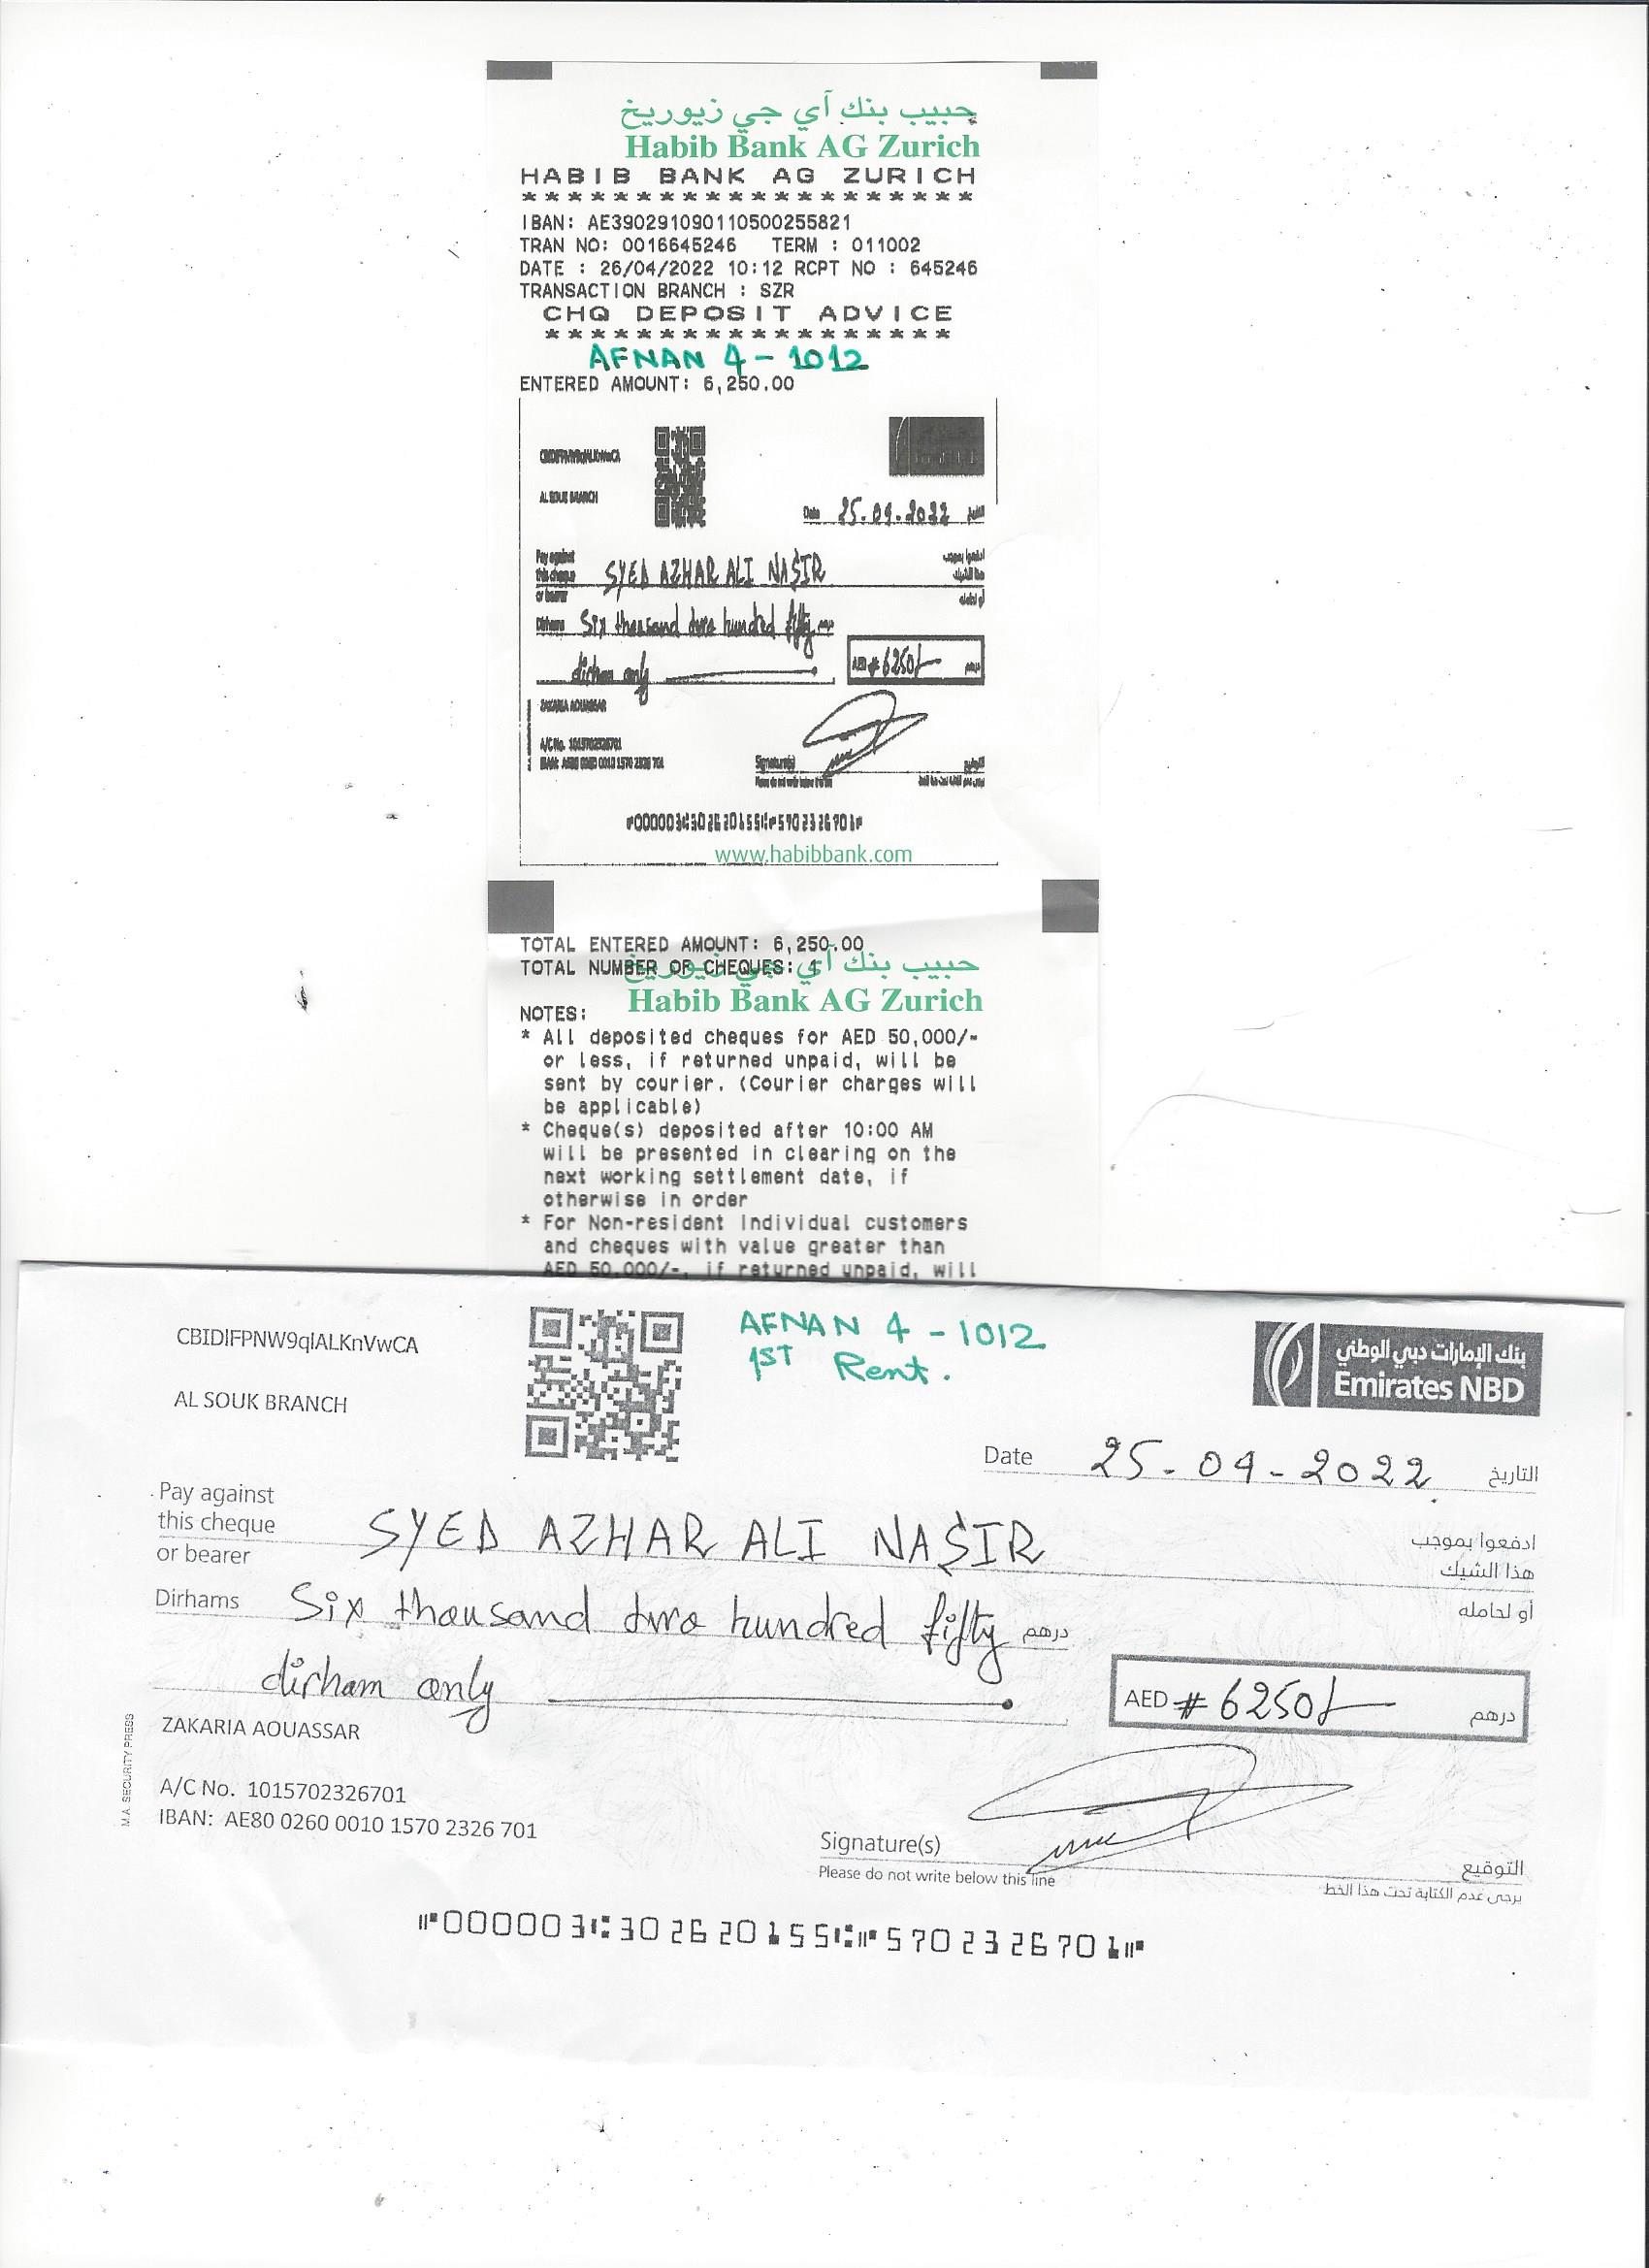 حبيب بنك آي جي زيوريخ
Habib Bank AG Zurich
HABIB BANK AG ZURICH
********************
IBAN: AE390291090110500255821
TRAN NO: 0016645246 TERM : 011002
DATE : 26/04/2022 10:12 RCPT NO : 645246
TRANSACTION BRANCH : SZR
CHQ DEPOSIT ADVICE
******************
AFNAN 4 - 1012
ENTERED AMOUNT: 6,250.00
AL SOUK BRANCH
Date 25.04.2022 التاريخ
Pay against ادفعوا بموجب
this cheque SYED AZHAR ALI NASIR هذا الشيك
or bearer أو لحامله
Dirhams Six thousand two hundred fifty درهم
dirham only AED # 6250/- درهم
ZAKARIA AOUASSAR
A/C No. 1015702326701
IBAN: AE80 0260 0010 1570 2326 701
Signature(s) التوقيع
Please do not write below this line يرجى عدم الكتابة تحت هذا الخط
⑈000003⑆302620155⑆⑈5702326701⑈
www.habibbank.com
TOTAL ENTERED AMOUNT: 6,250.00
TOTAL NUMBER OF CHEQUES: 1
حبيب بنك آي جي زيوريخ
Habib Bank AG Zurich
NOTES:
* All deposited cheques for AED 50,000/-
or less, if returned unpaid, will be
sent by courier. (Courier charges will
be applicable)
* Cheque(s) deposited after 10:00 AM
will be presented in clearing on the
next working settlement date, if
otherwise in order
* For Non-resident individual customers
and cheques with value greater than
AED 50,000/-, if returned unpaid, will
CBIDIFPNW9qIALKnVwCA
AFNAN 4 - 1012
1ST Rent.
بنك الإمارات دبي الوطني
Emirates NBD
AL SOUK BRANCH
Date 25-04-2022 التاريخ
Pay against ادفعوا بموجب
this cheque SYED AZHAR ALI NASIR هذا الشيك
or bearer أو لحامله
Dirhams Six thousand two hundred fifty درهم
dirham only AED # 6250/- درهم
ZAKARIA AOUASSAR
M.A. SECURITY PRESS
A/C No. 1015702326701
IBAN: AE80 0260 0010 1570 2326 701
Signature(s) التوقيع
Please do not write below this line يرجى عدم الكتابة تحت هذا الخط
⑈000003⑆302620155⑆⑈5702326701⑈